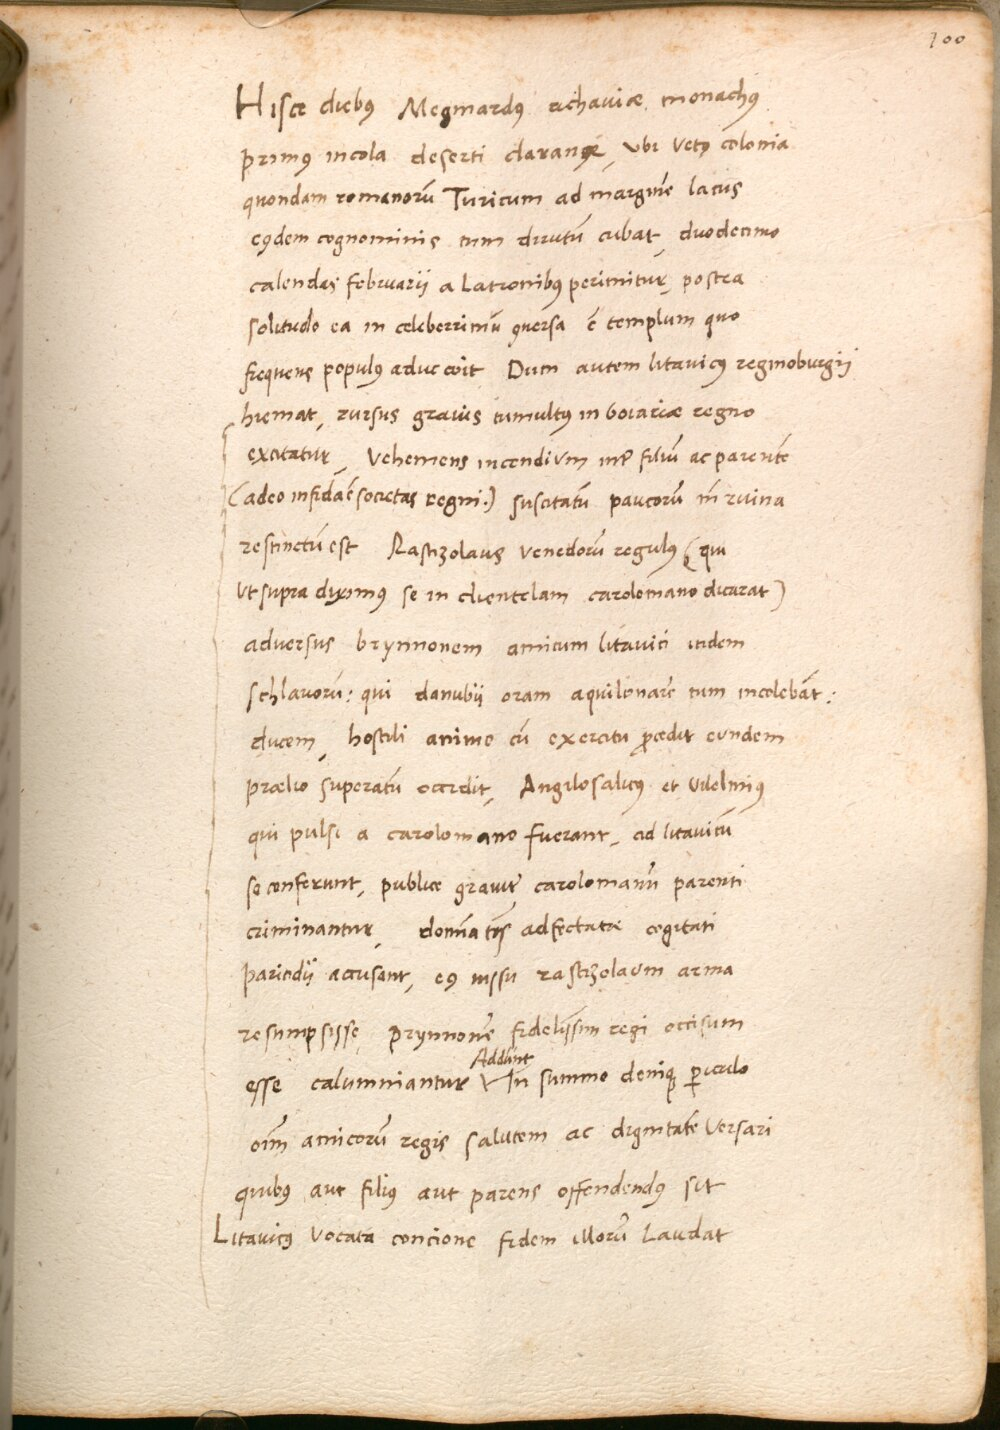 100
Hisce diebꝰ Megmardꝰ richaviæ monachꝰ
primꝰ incola deserti claranæ, ubi vetꝰ colonia
quondam romanorũ Turicum ad marginẽ lacus
eꝰdem cognominis tum dirutũ cubat, duodecimo
calendas februarii a Latronibꝰ perimitur, postea
solitudo ea in celeberrimũ ꝯversa ẽ templum quo
frequens populꝰ aduc coit Dum autem litavicꝰ reginoburgii
hiemat, rursus gravis tumultꝰ in boiariæ regno
excitatur, Vehemens incendium intꝰ filiũ ac parentẽ
(adeo infida ẽ societas regni.) suscitatũ paucorũ tñ ruina
restinctũ est Rastizolaus venedorũ regulꝰ (qui
ut supra diximꝰ se in clientelam carolomano dicarat)
adversus brynnonem amicum litavici itidem
schlavorũ: qui danubii oram aquilonarẽ tum incolebãt:
ducem, hostili animo cũ exercitu ꝓcedit eundem
prælio superatũ occidit, Angilosalicꝰ et Vilelmiꝰ
qui pulsi a carolomano fuerant, ad litavicũ
se conferunt, publice gravitẽr carolomanũ parenti
criminantur, domina tiõis adfectatæ cogitati
paricidii accusant, eꝰ iussu rastizolaum arma
resumpsisse, prynnonẽ fidelissim regi occisum
esse calumniantur Addunt In summo deniqꝫ ꝑiculo
oim̃ amicorũ regis salutem ac dignitatẽ versari
quibꝰ aut filiꝰ aut parens offendendꝰ sit
Litavicꝰ vocata concione fidem illorũ laudat